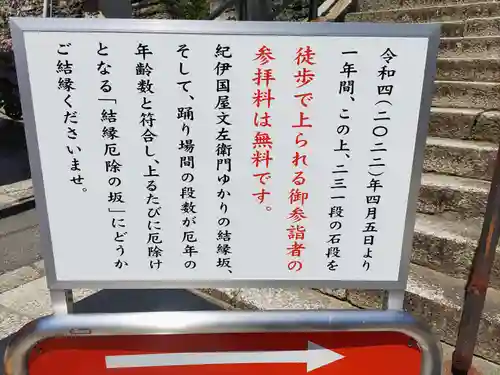 令和四（二〇二二）年四月五日より
一年間、この上、二三一段の石段を
徒歩で上られる御参詣者の
参拝料は無料です。
紀伊国屋文左衛門ゆかりの結縁坂、
そして、踊り場間の段数が厄年の
年齢数と符合し、上るたびに厄除け
となる「結縁厄除の坂」にどうか
ご結縁くださいませ。